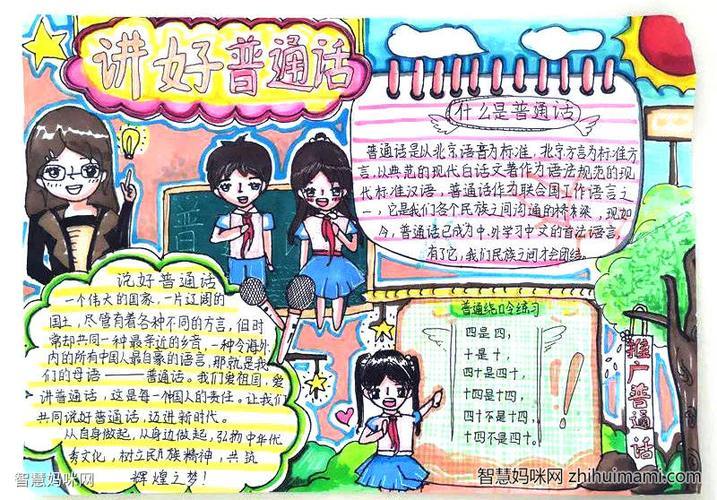 讲好普通话
什么是普通话
普通话是以北京语音为标准，北京方言为标准方
言，以典范的现代白话文著作为语法规范的现
代标准汉语，普通话作为联合国工作语言之
一，它是我们各个民族之间沟通的桥梁，现如
今，普通话已成为中、外学习中文的首法语言，
有了它，我们民族之间才会团结。
普
说好普通话
一个伟大的国家，一片辽阔的
国土，尽管有着各种不同的方言，但时
常却共同一种最亲近的乡音，一种令海外
内的所有中国人最自豪的语言，那就是我
们的母语——普通话。我们爱祖国，爱
讲普通话，这是每一个国人的责任。让我们
共同说好普通话，迈进新时代。
从自身做起，从身边做起，弘扬中华代
秀文化，树立民族精神，共筑
辉煌之梦！
普通绕口令练习
四是四，
十是十，
四十是四十，
十四是十四，
四十不是十四，
十四不是四十。
推广普通话
智慧妈咪网
智慧妈咪网 zhihuimami.com